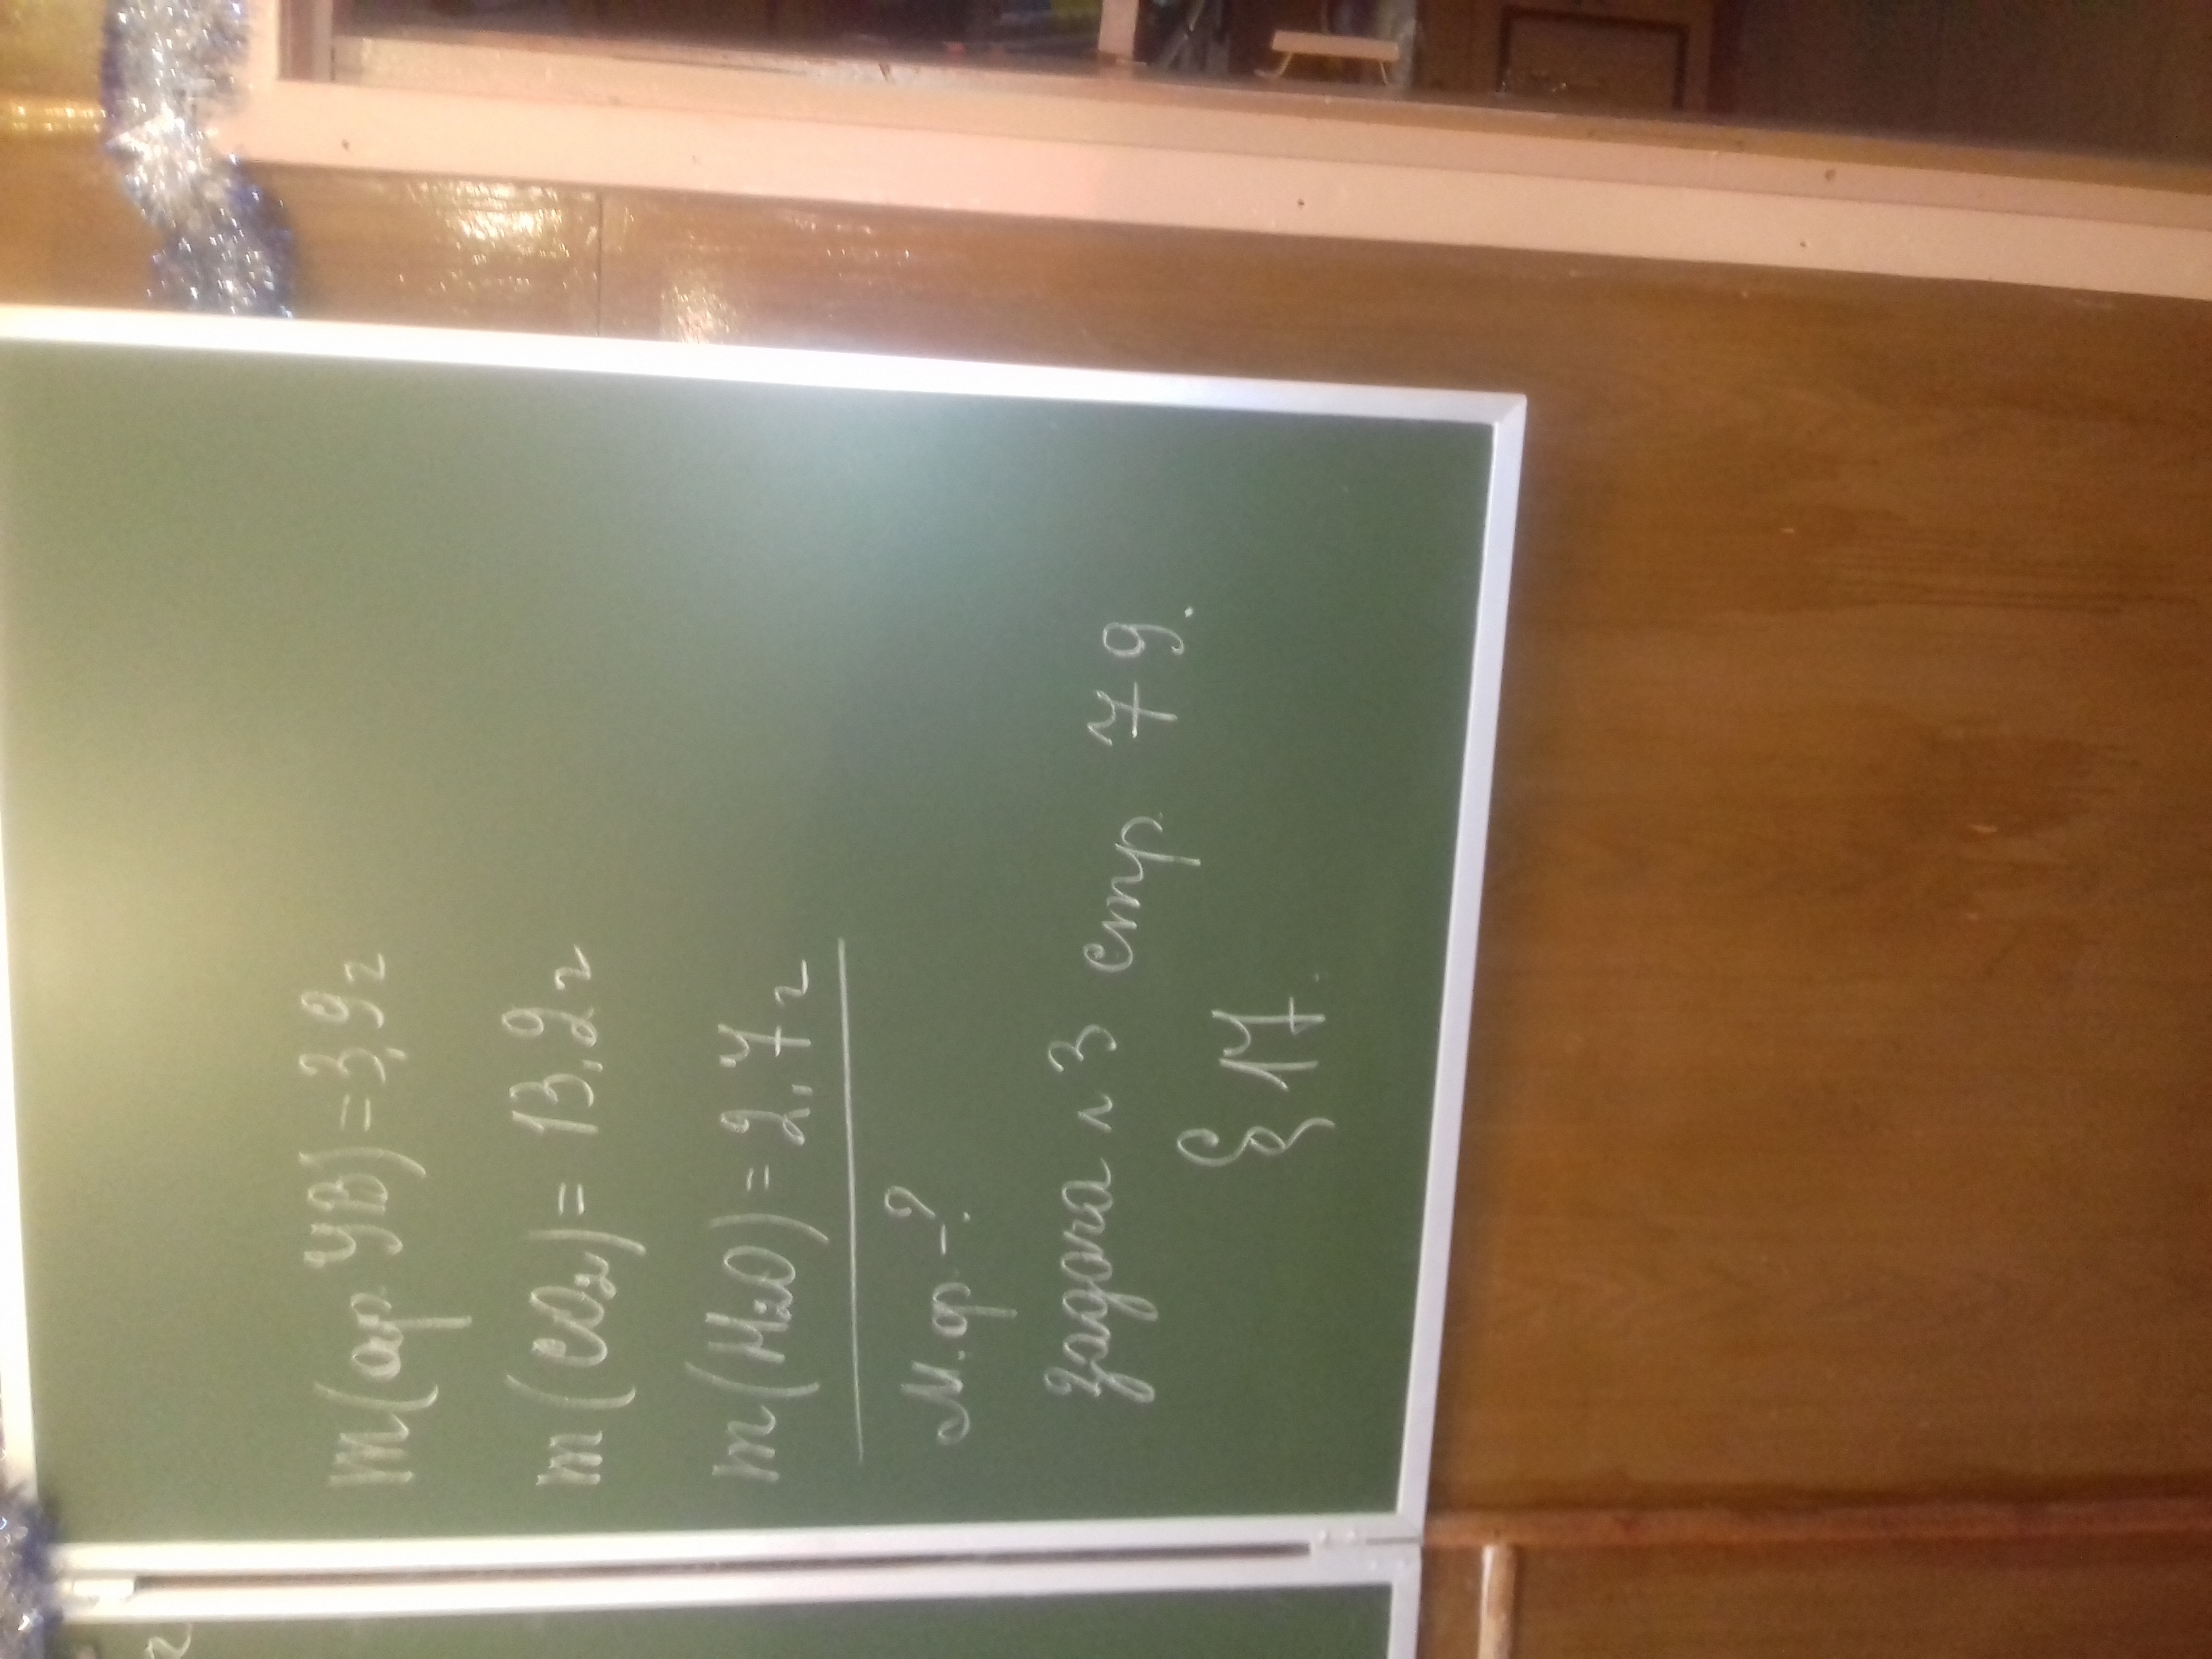 m(ар УВ) = 3,9 г
m(CO₂) = 13,2 г
m(H₂O) = 2,7 г
М.ф - ?
задача 3 стр 79.
§ 17.
г